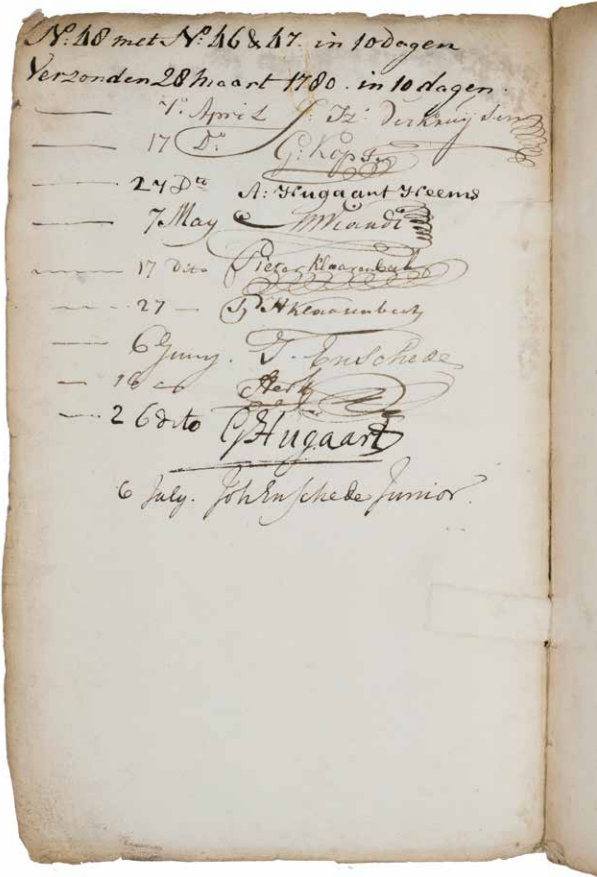 No: 48 met No: 46 & 47. in 10 dagen
Verzonden 28 Maart 1780. in 10 dagen.
—— 7o. April
—— 17 Do. G: Kops
—— 27 Dto A: Hugaart Heems
—— 7 May
—— 17 dito Pieter Klaarenbeek
—— 27 — Klaarenbeek
—— 6 Juny. J. Enschede
— 16
—— 26 dito G Hugaart
6 July. Joh Enschede Junior.